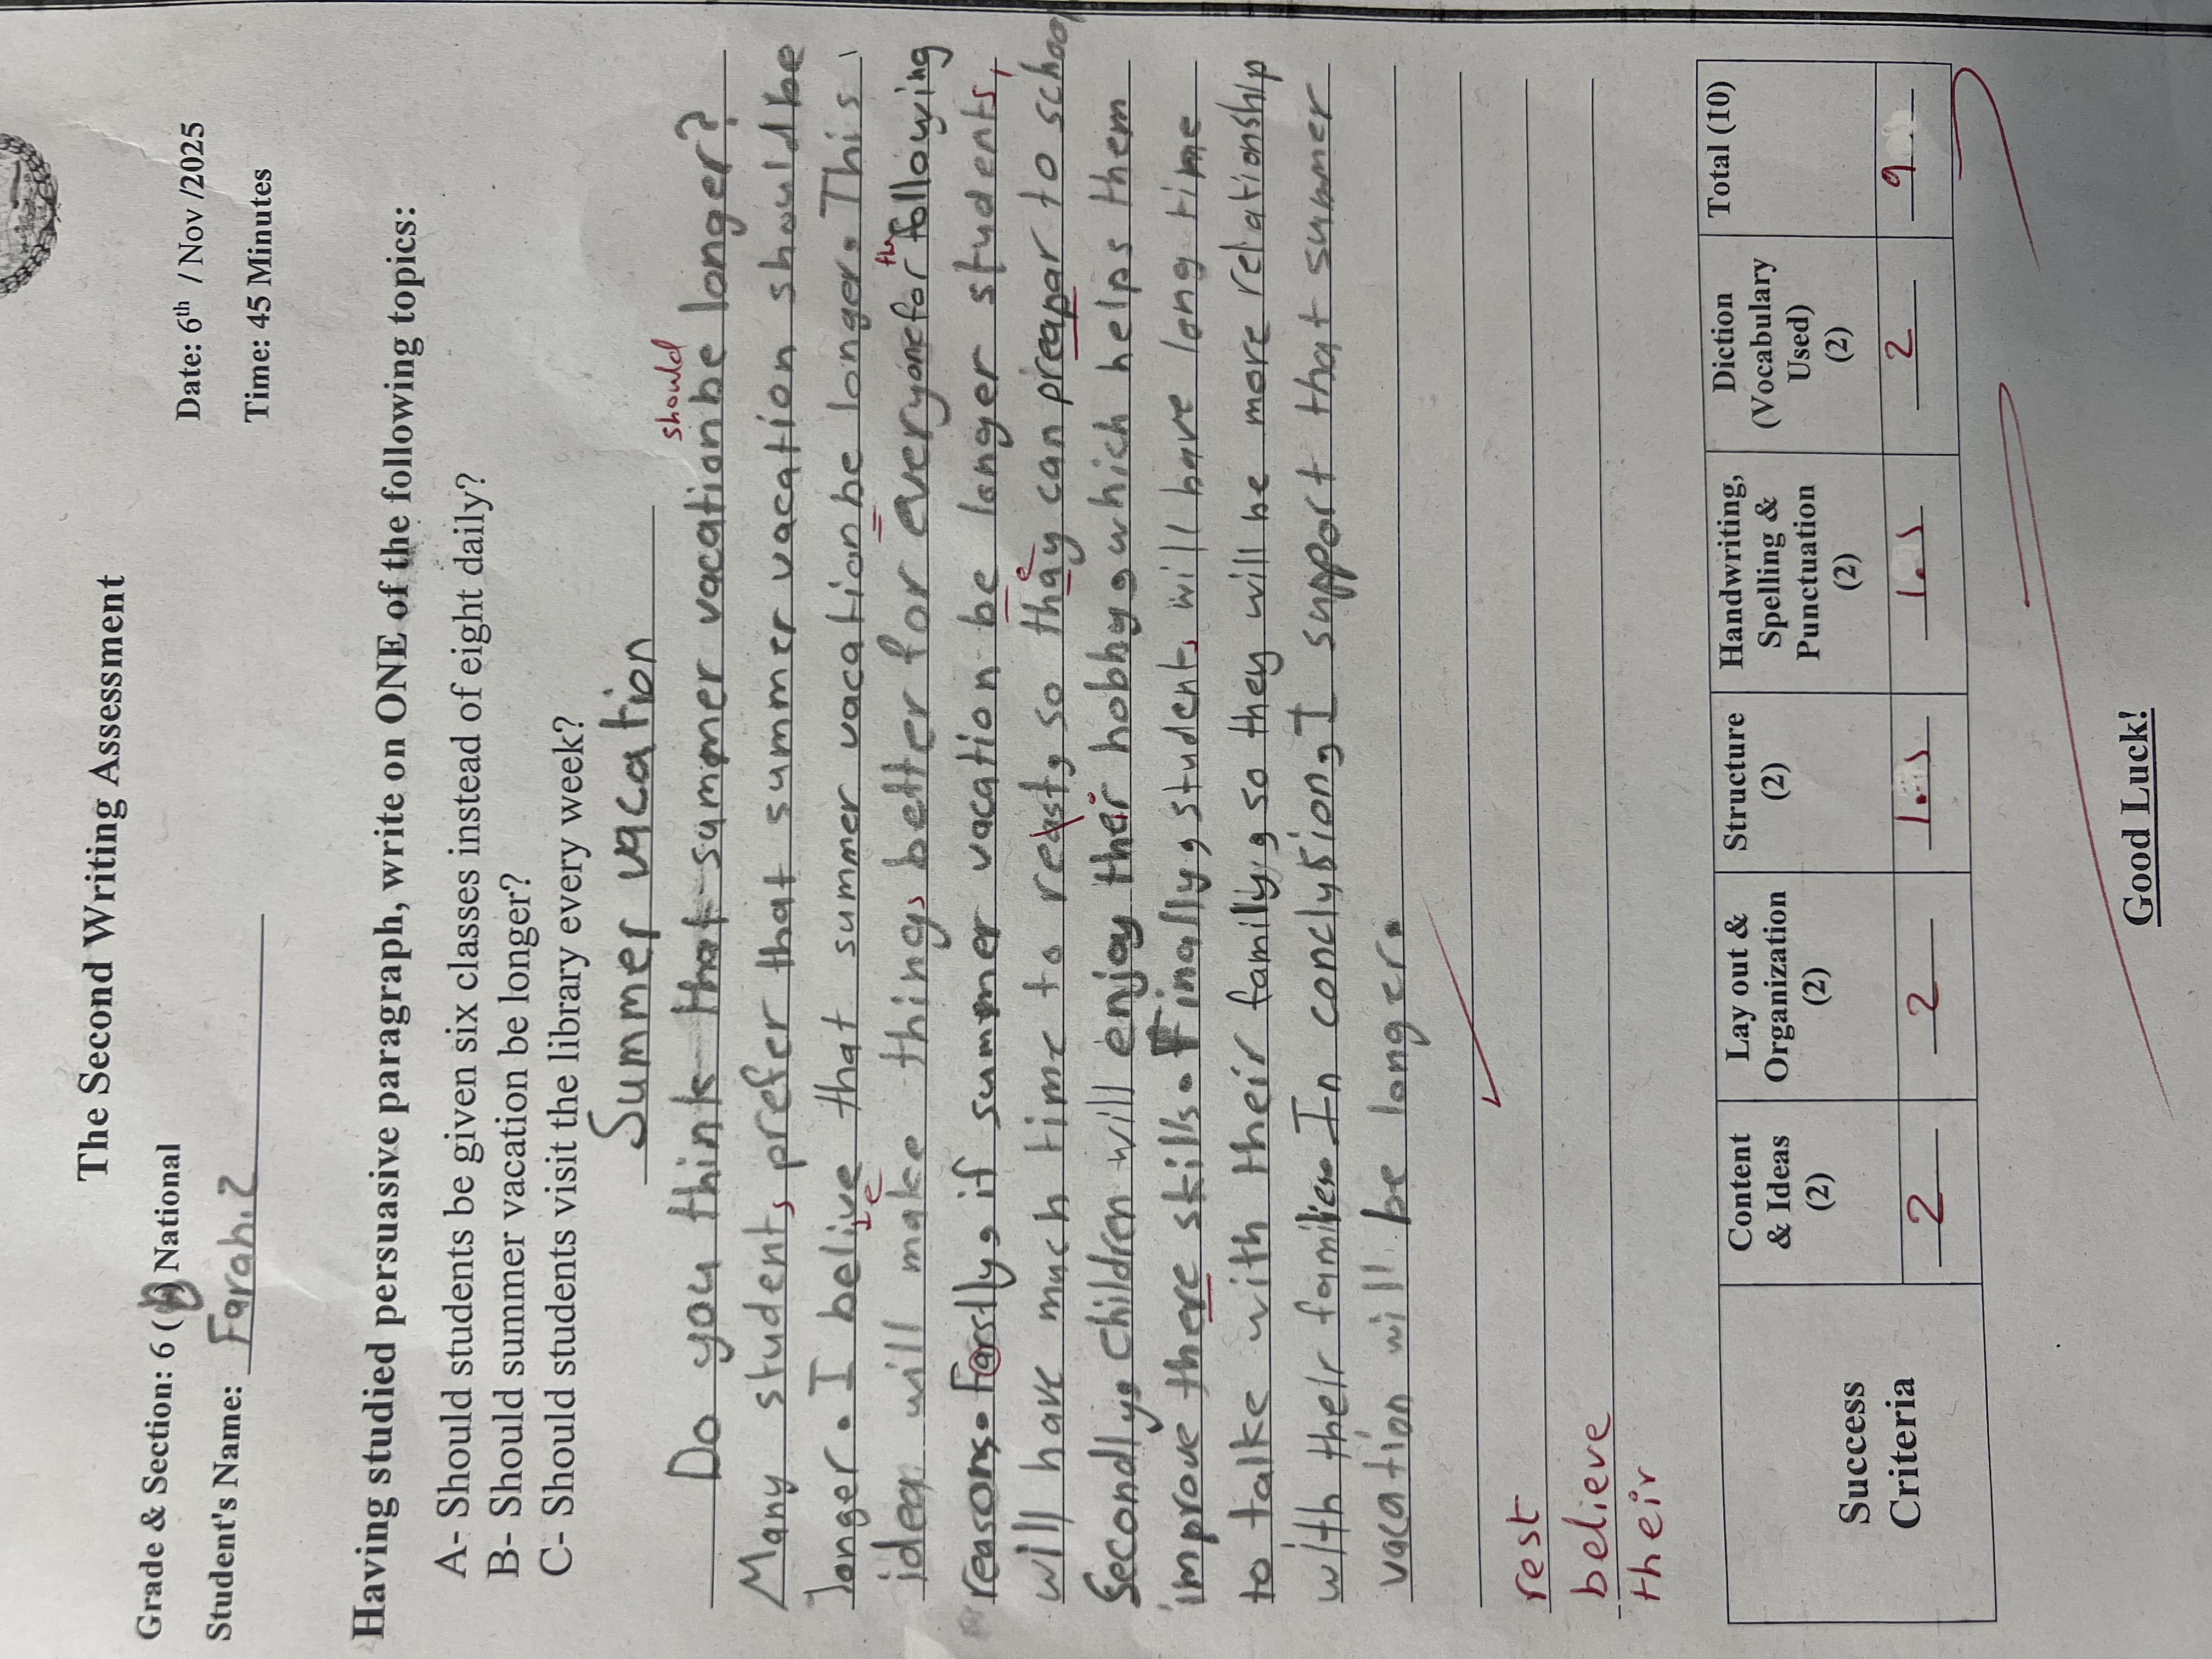 The Second Writing Assessment
Grade & Section: 6 (B) National
Date: 6th / Nov /2025
Student's Name: Farah.Z
Time: 45 Minutes
Having studied persuasive paragraph, write on ONE of the following topics:
A- Should students be given six classes instead of eight daily?
B- Should summer vacation be longer?
C- Should students visit the library every week?
Summer vacation
should
Do you think that summer vacation be longer?
Many students prefer that summer vacation should be
longer. I belive that summer vacation be longer. This
ie
idea will make things better for everyone for the following
reasons. Farstly, if summer vacation be longer students,
will have much time to reast, so thay can preapar to school
e
Secondly, children will enjoy their hobby, which helps them
improve there skills. Finally, students will have long time
to talk with their family, so they will be more relationship
with their families. In conclusion, I support that summer
vacation will be longer.
rest
believe
their
Success Criteria
Content & Ideas (2)
Lay out & Organization (2)
Structure (2)
Handwriting, Spelling & Punctuation (2)
Diction (Vocabulary Used) (2)
Total (10)
2
2
1.5
1.5
2
9
Good Luck!